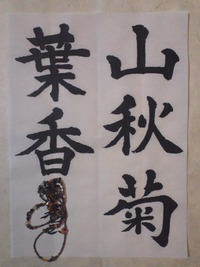 山秋菊
葉香